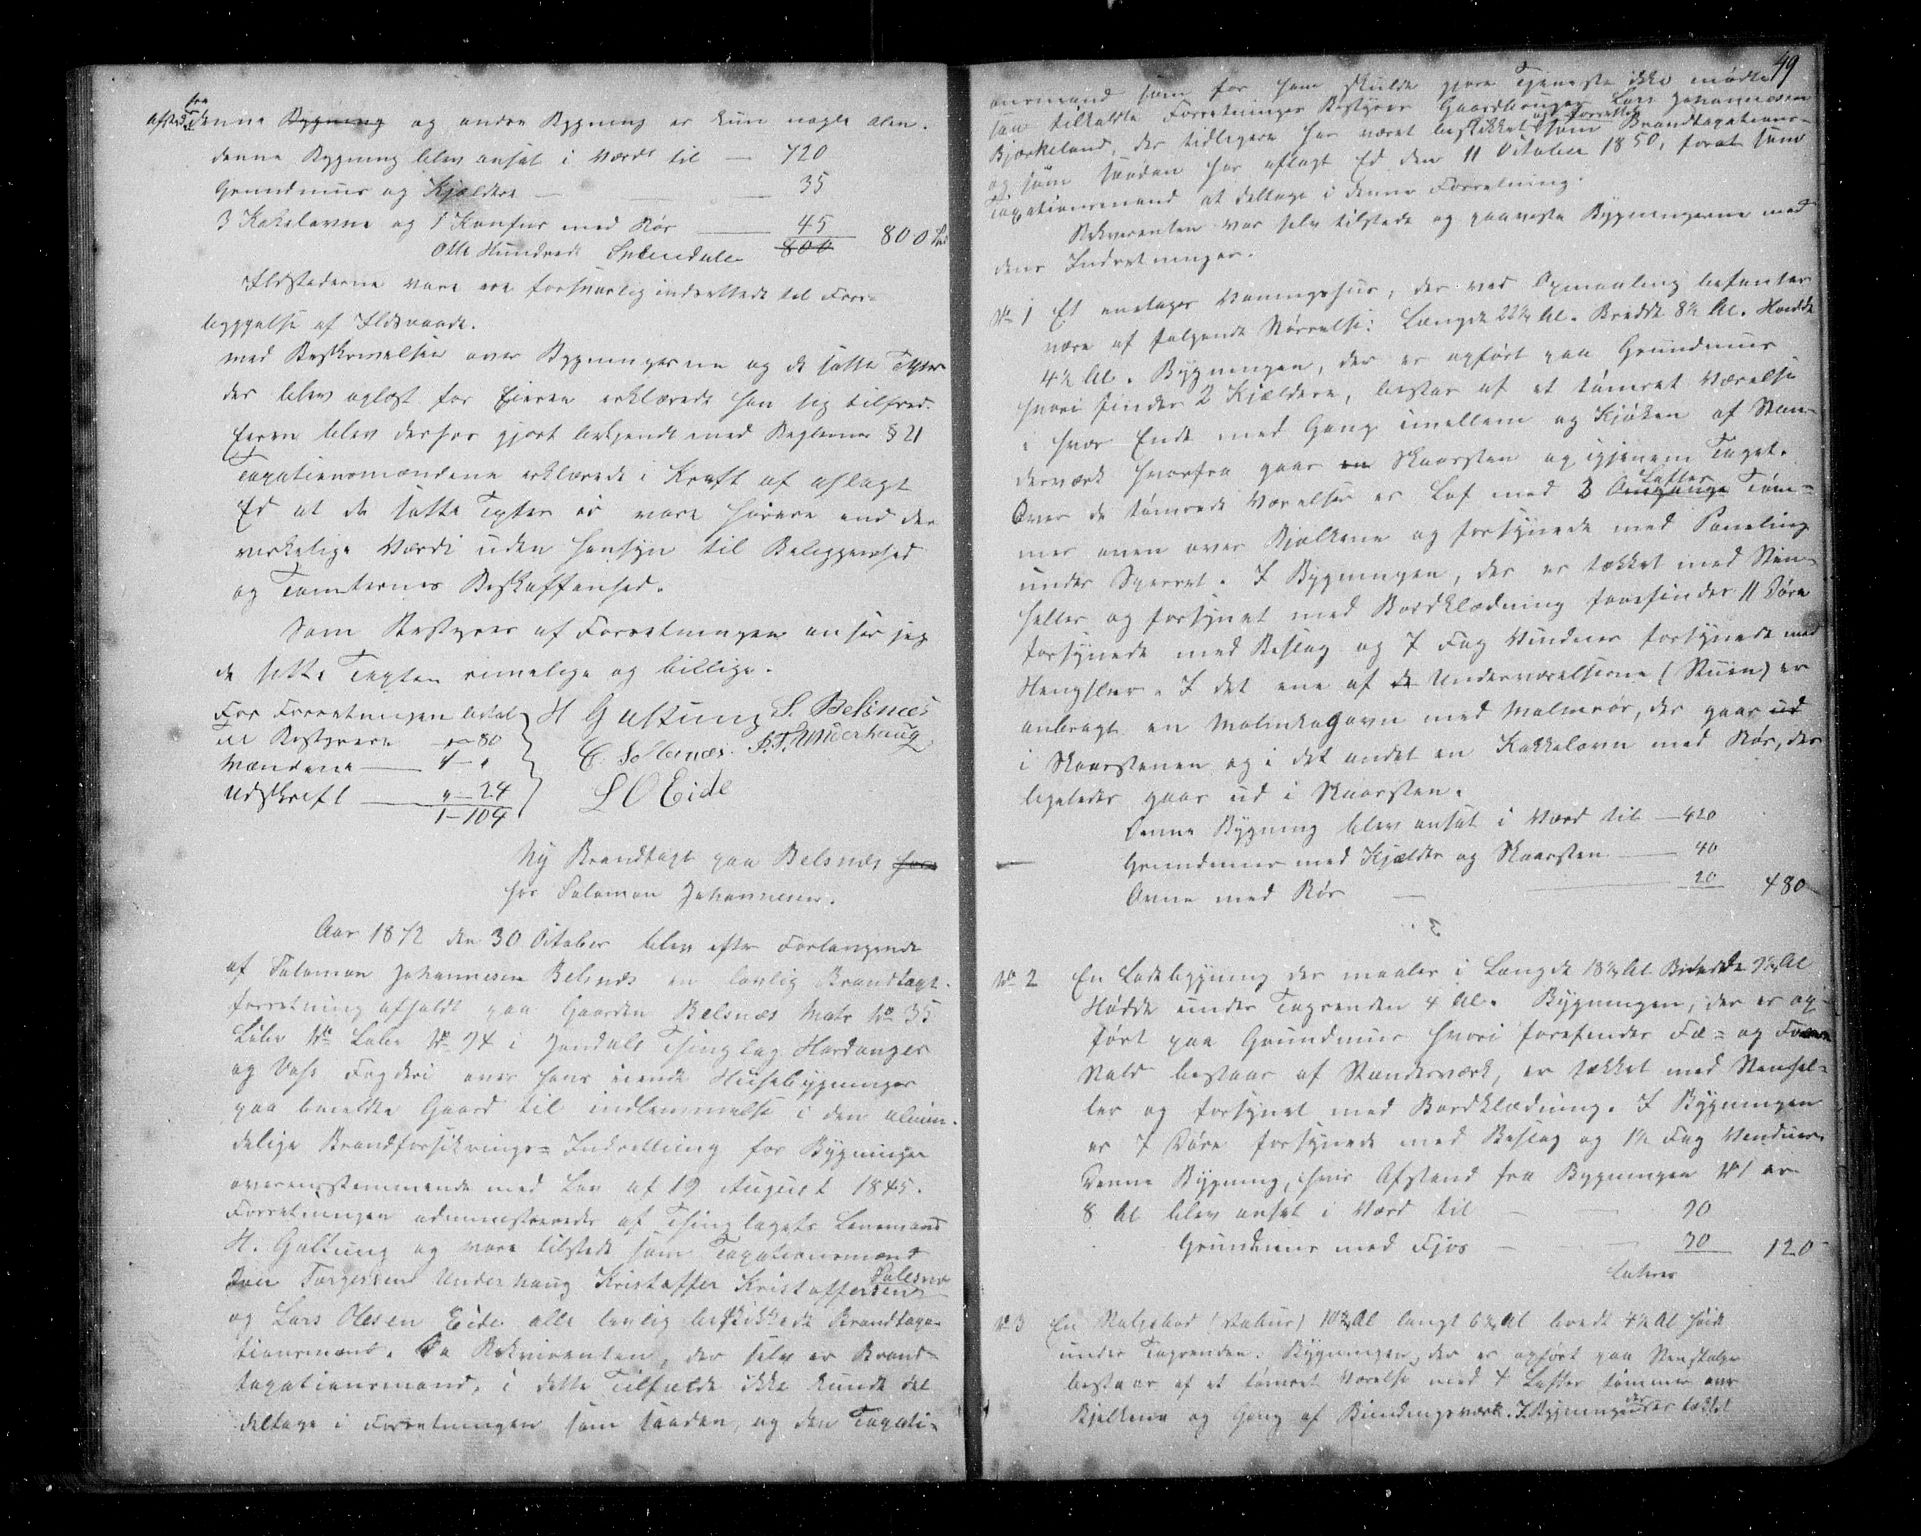 fra
Afstand denne Bygning og andre Bygning er kun nogle alen.
denne Bygning blev ansat i Værdi til — 720
Grundmuur og Kjældere — — 35
3 Kakelovne og 1 Komfur med Rør — 45
Otte Hundrede Speciedaler 800 800 Sp
Ildstederne vare ere forsvarlig indrettede til Fore-
byggelse af Ildsvaade.
med Beskrivelsen over Bygningerne og de satte Taxter
der blev oplæst for Eieren erklærede han sig tilfreds.
Eieren blev derhos gjort bekjendt med Reglerne § 21
Taxationsmændene erklærede i Kraft af aflagt
Ed at de satte Taxter ei vare høiere end den
virkelige Værdi uden Hensyn til Beliggenhed
og Tomternes Beskaffenhed.
Som Bestyrer af Forretningen anser jeg
de satte Taxter rimelige og billige.
For Forretningen betalt H Galtung S. Belsnæs
til Bestyreren — 80 C. Solesnæs. P. T. Underhaug
Mændene —
Udskrift — " — 24 L O Eide
1—104
Ny Brandtaxt paa Belsnæs hos
hos Salomon Johannesen.
Aar 1872 den 30 October blev efter Forlangende
af Salomon Johannesen Belsnæs en lovlig Brandtaxt-
forretning afholdt paa Gaarden Belsnæs Matr No 35
Løbe No Løbe No 94 i Jondals Thinglag Hardanger
og Voss Fogderi over hans eiende Huusebygninger
paa bemeldte Gaard til indlemmelse i den almin-
delige Brandforsikrings-Indretning for Bygninger
overensstemmende med Lov af 19 August 1845.
Forretningen administreredes af Thinglagets Lensmand
H. Galtung og vare tilstede som Taxationsmænd
Torgersen Underhaug Kristoffer Kristoffersen Solesnæs
og Lars Olesen Eide alle lovlig beskikkede Brandtaxa-
tionsmænd. Da Rekvirenten, der selv er Brand-
taxationsmand, i dette Tilfælde ikke kunde del
deltage i Forretningen som saadan, og den Taxati-
49
onsmand som for ham skulde gjøre Tjeneste ikke mødte
saa tilkaldte Forretningens Bestyrer Gaardbruger Lars Johannesen
Bjørkeland, der tidligere har været beskikket som Brandtaxations-
og som saadan har aflagt Ed den 11 October 1850, forat som
Taxationsmand at deltage i denne Forretning.
Rekvirenten var selv tilstede og paaviste Bygningerne med
deres Indretninger.
No 1 Et enetages Vaaningshus, der ved Opmaaling befantes
være af følgende Størrelse: Længde 22½ Al. Bredde 8½ Al. Høide
4½ Al. Bygningen, der er opført paa Grundmuur
hvori findes 2 Kjældere, bestaar af et tømret Værelse
i hver Ende med Gang imellem og Kjøken af Sten-
derværk hvorfra gaar en Skorsten op igjenem Taget.
Over de tømrede Værelser er Loft med 3 Omgange Lofter Tøm-
mer oven over Bjelkene og forsynede med Paneling
under Sperret. I Bygningen, der er tækket med Sten-
heller og forsynet med Bordklædning forefindes 11 Døre
forsynede med Beslag og 7 Fag Vinduer forsynede med
Hængsler. I det ene af de Underværelserne (Stuen) er
anbragt en Malmkagovn med Malmrør, der gaar ud
i Skorstenen og i det andet en Kakkelovn med Rør, der
ligeledes gaar ud i Skorsten.
Denne Bygning blev ansat i Værd til — 420
Grundmuur med Kjælder og Skorsten — 40
Ovne med Rør — 20 480
No 2 En Ladebygning der maaler i Længde 18½ Al Bredde 9½ Al
Høide under Tagrenden 4 Al. Bygningen, der er op-
ført paa Grundmuur hvori forefindes Fæ- og
Stald bestaar af Stenderværk, er tækket med Stenhel-
ler og forsynet med Bordklædning. I Bygningen
er 7 Døre forsynede med Beslag og 1½ Fag Vinduer.
Denne Bygning, hvis Afstand fra Bygningen No 1 er
8 Al blev ansat i Værd til — — 90
Grundmuur med Fjøs — — 30 120
Latus
No 3 En Matbod (Stabur) 10¾ Al langt 6¾ Al bredt 4¼ Al høit
under Tagrenden. Bygningen, der er opført paa Stenstolper
bestaar af et tømret Værelse med 4 Lofter tømmer over
Bjelkene og Gang af Bindingsværk. I Bygningen der er tækket